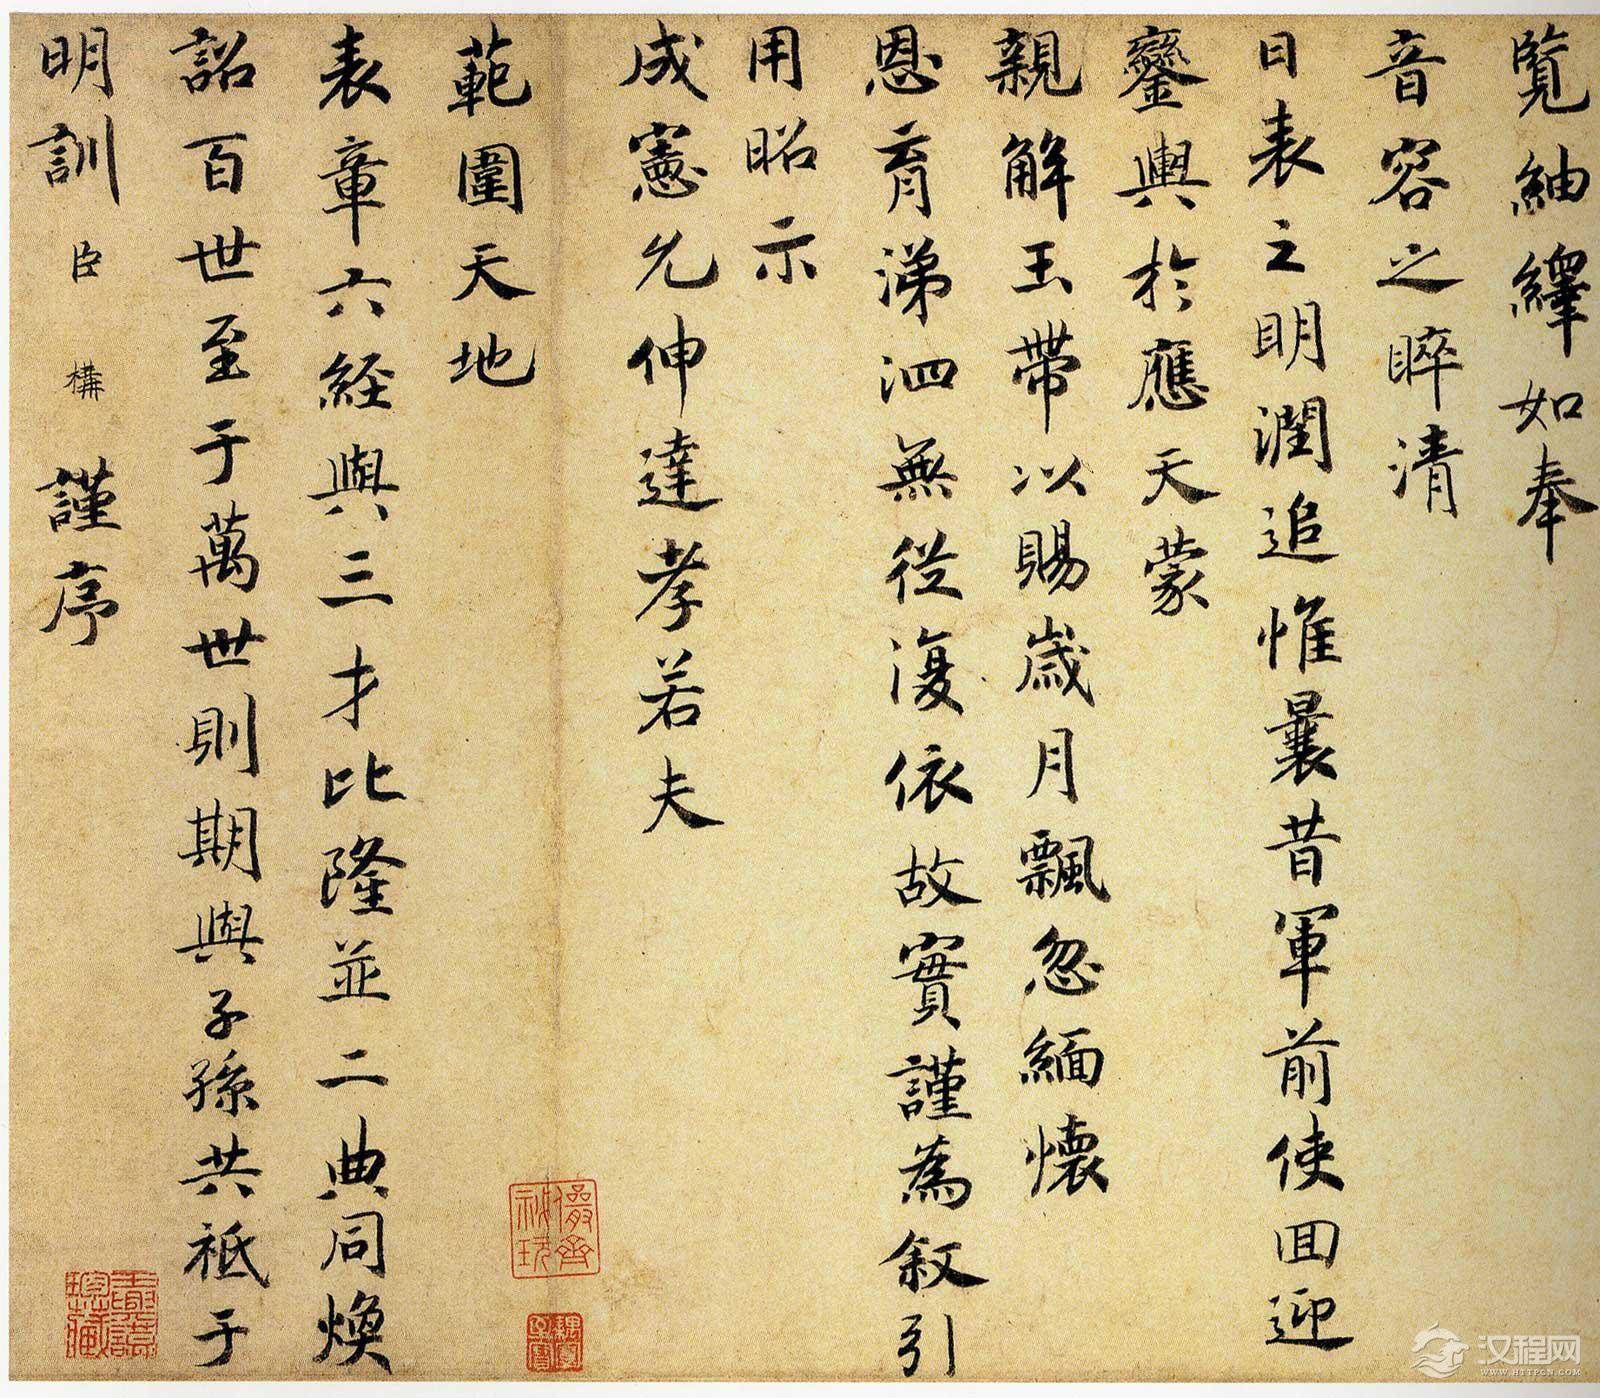 覽紬繹如奉
音容之睟清
日表之明潤追惟曩昔軍前使回迎
鑾輿於應天蒙
親解玉帶以賜歲月飄忽緬懷
恩育涕泗無從復依故實謹為叙引
用昭示
成憲允伸達孝若夫
範圍天地
表章六經與三才比隆並二典同煥
詔百世至于萬世則期與子孫共祗于
明訓臣構謹序
儼齋秘玩
汉程网
WWW.HTTPCN.COM